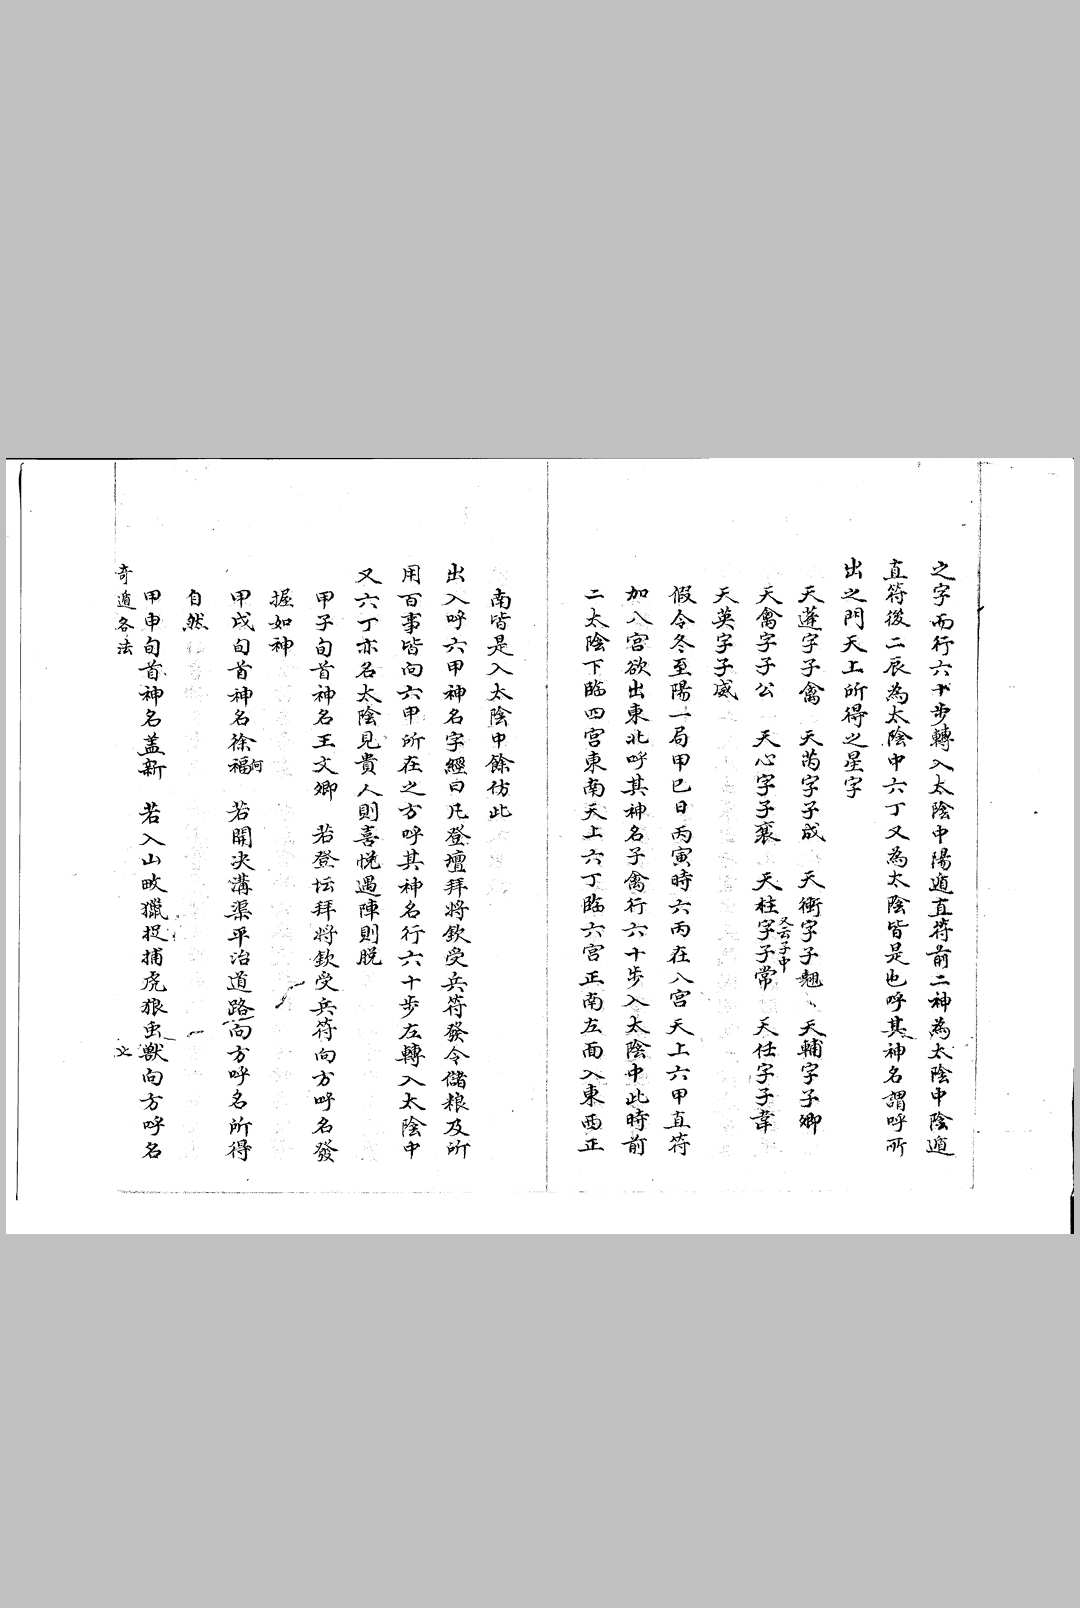 之字而行六十步轉入太陰中陽遁直符前二神為太陰中陰遁
直符後二辰為太陰中六丁又為太陰皆是也呼其神名謂呼所
出之門天上所得之星字
天蓬字子禽 天芮字子成 天衝字子翹 天輔字子卿
天禽字子公 天心字子襄 天柱字子常又云子中 天任字子韋
天英字子威
假令冬至陽一局甲巳日丙寅時六丙在八宮天上六甲直符
加八宮欲出東北呼其神名子禽行六十步入太陰中此時前
二太陰下臨四宮東南天上六丁臨六宮正南左面入東西正
南皆是入太陰中餘仿此
出入呼六甲神名字經曰凡登壇拜將欽受兵符發令儲粮及所
用百事皆向六甲所在之方呼其神名行六十步左轉入太陰中
又六丁亦名太陰見貴人則喜悅遇陣則脫
甲子旬首神名王文卿 若登坛拜將欽受兵符向方呼名發
握如神
甲戌旬首神名徐福何 若開决溝渠平冶道路向方呼名所得
自然
甲申旬首神名盖新 若入山畋獵捉捕虎狼虫獸向方呼名
奇遁各法